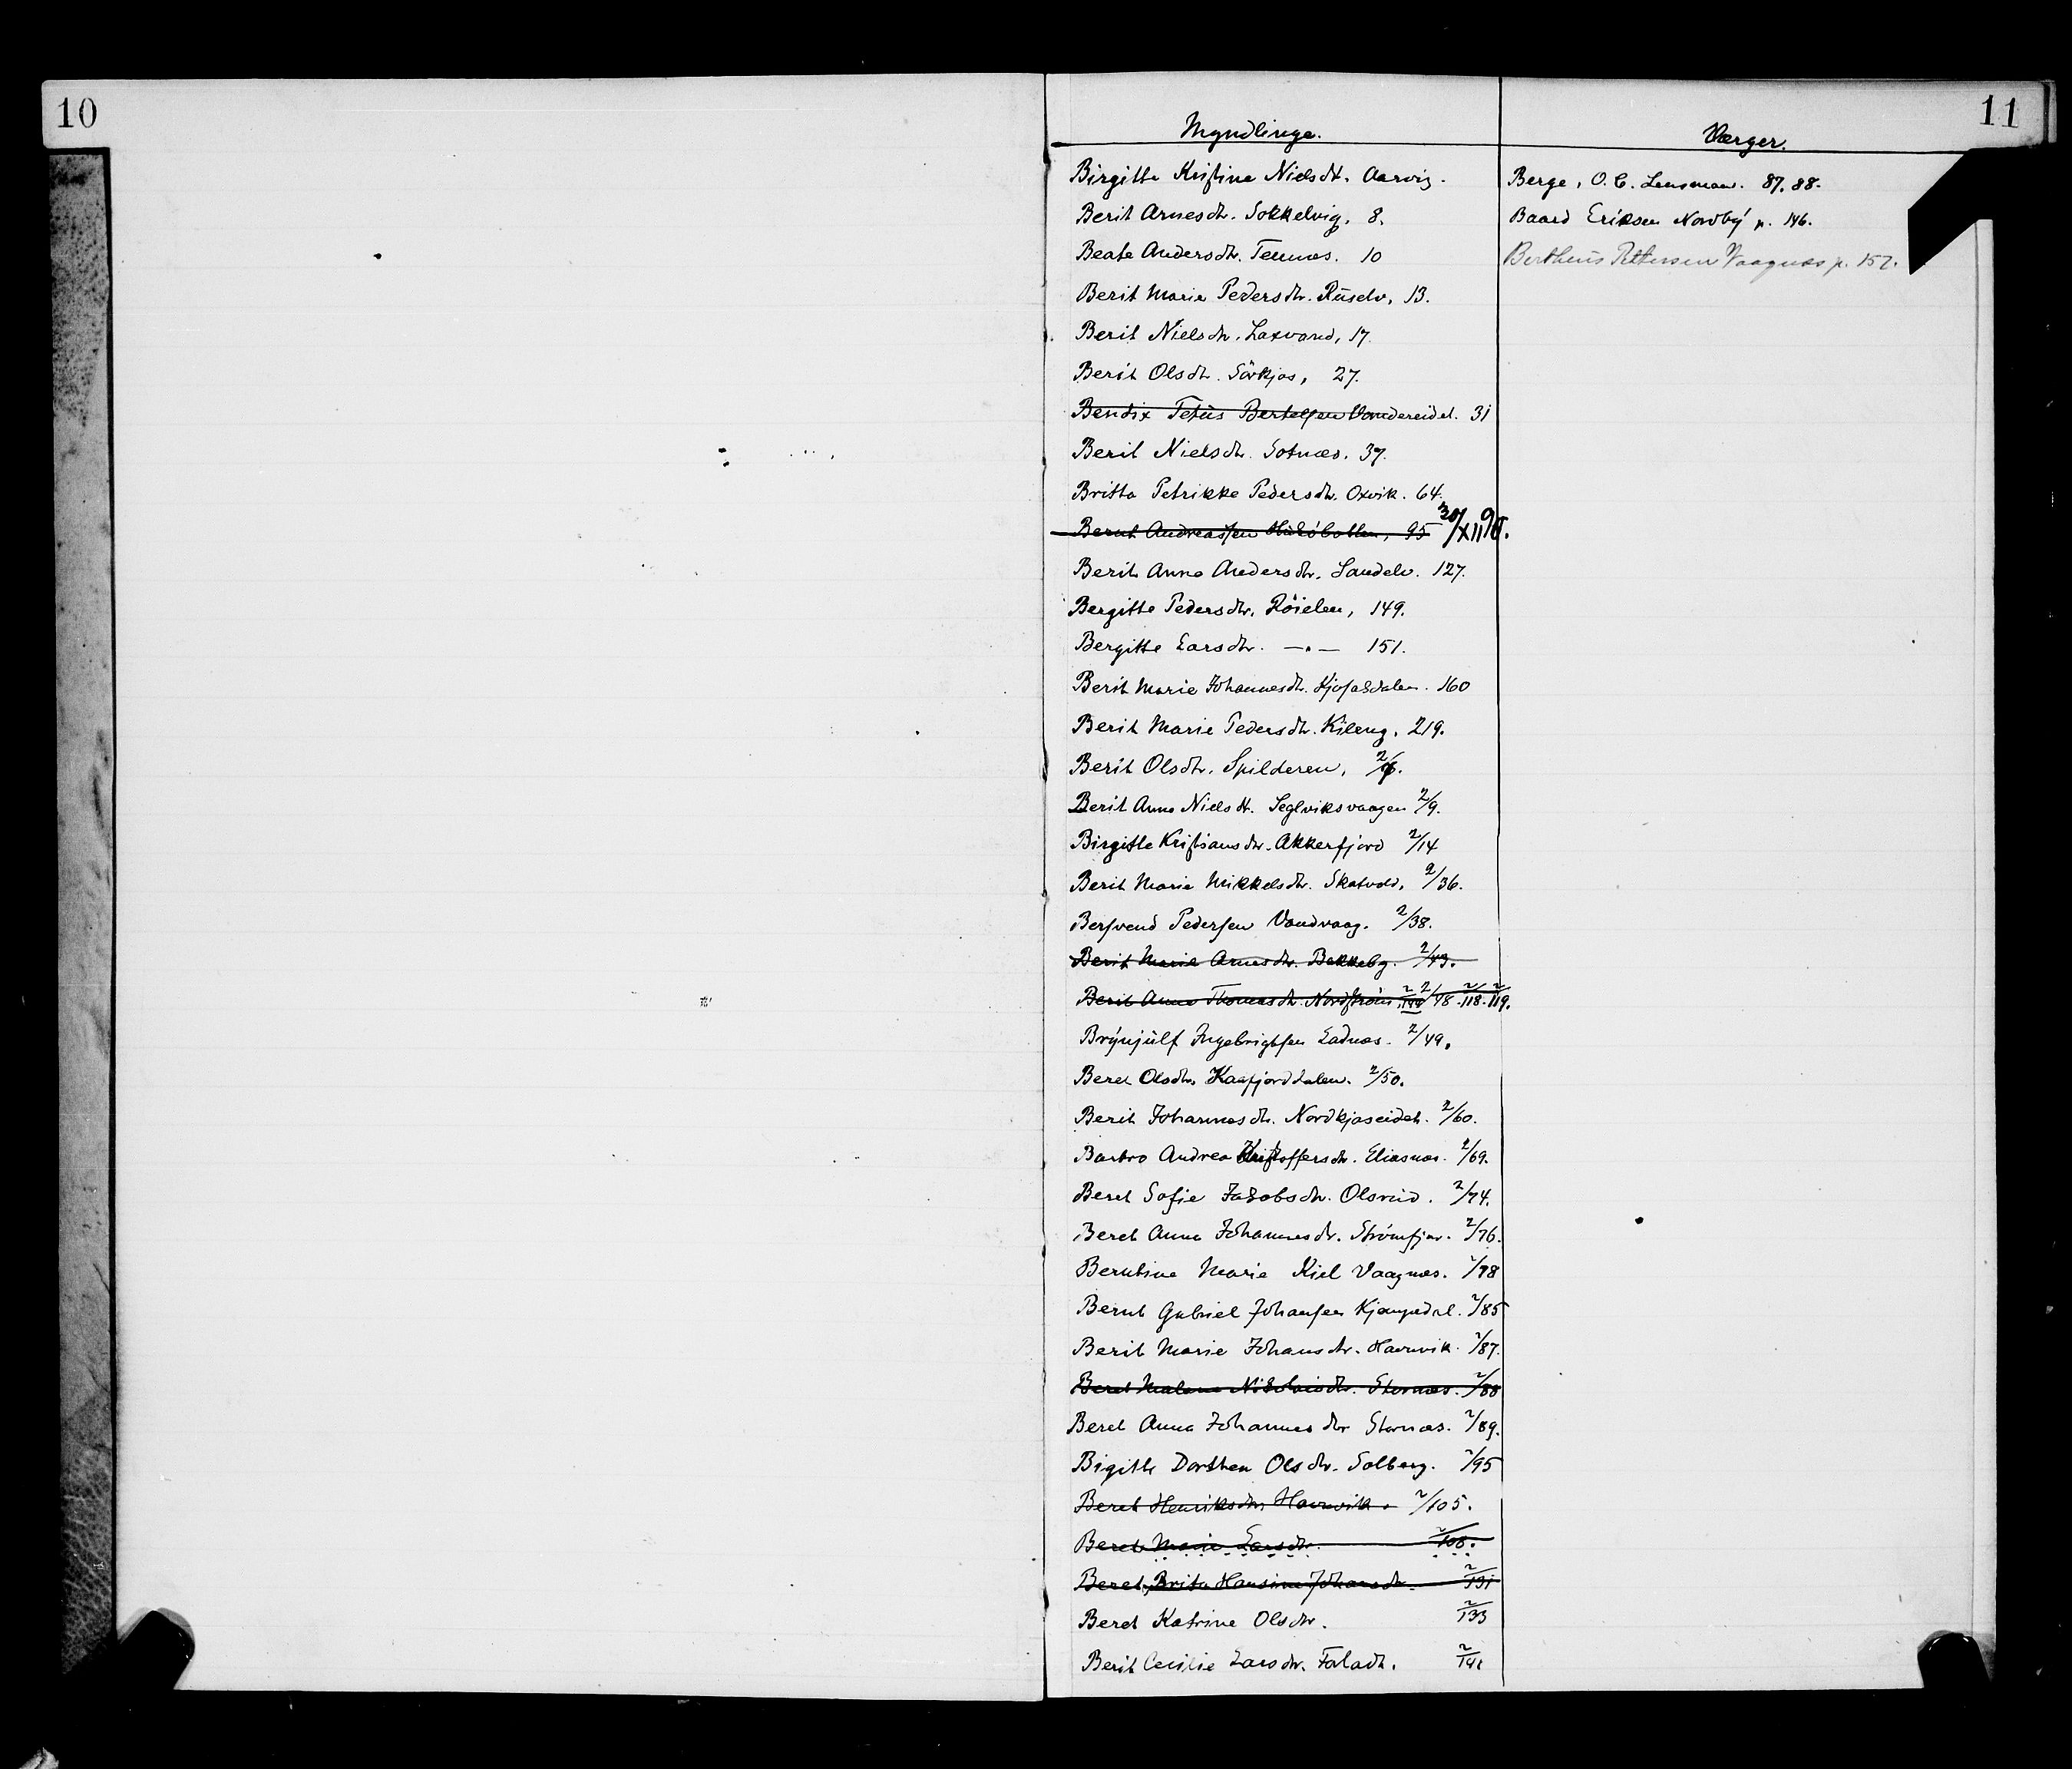 10
11
Myndlinge.
Værger.
Birgitte Kristine Nielsdt. Aarvig.
Berit Arnesdtr. Sokkelvig, 8.
Beate Andersdtr. Tennæs. 10
Berit Marie Pedersdtr. Rüselv, 13.
Berit Nielsdtr. Laxvand, 17.
Berit Olsdtr. Sörkjos, 27.
Bendix Tetüs Bertelsen Vandereidet. 31
Berit Nielsdtr. Sotnæs. 37.
Britta Petrikke Pedersdtr. Oxvik. 64.
Bernt Andreassen 95 30/XII 98.
Berit Anna Andersdtr. Sandelv. 127.
Bergitte Pedersdtr. Röielen, 149.
Bergitte Larsdtr. —"— 151.
Berit Marie Johannesdtr. Kjosasdalen. 160
Berit Marie Pedersdtr. Kileng. 219.
Berit Olsdtr. Spilderen, 2/8.
Berit Anne Nielsdt. Seglviksvaagen 2/9.
Birgitte Kristiansdtr. Akkerfjord 2/14
Berit Marie Mikkelsdtr. Skatvold, 2/36.
Bersvend Pedersen Vandvaag. 2/38.
Berit Marie Arnesdtr. Bakkeby. 2/43.
Berit Anne Thomasdtr. Nordstrøm, 2/144 2/48. 2/118. 2/119.
Brÿnjülf Ingebrigtsen Ladnæs. 2/49.
Beret Olsdtr. Kaafjorddalen. 2/50.
Berit Johannesdtr. Nordkjoseidet. 2/60.
Barbro Andrea Kristoffersdtr. Eliasnæs. 2/69.
Beret Sofie Jakobsdtr. Olsrüd. 2/74.
Beret Anna Johannesdtr. Strömfjor. 2/76.
Berntine Marie Kiel Vaagnæs. 2/78
Bernt Gabriel Johansen Kjempedal. 2/85
Berit Marie Johansdtr. Havnvik. 2/87.
Beret Malene Nikolaisdtr. Stornæs. 2/88
Beret Anna Johannesdtr Stornæs. 2/89.
Bigitte Dorthea Olsdtr. Solberg. 2/95
Beret Henriksdtr Havnvik. 2/105.
Beret Marie Larsdtr. 2/108.
Beret Brita Hansine Johansdtr. 2/131
Beret Katrine Olsdtr. 2/133
Berit Cecilie Larsdtr. 2/141
Berge, O. C. Lensmann. 87. 88.
Baard Eriksen Nordbÿ p. 146.
Bertheüs Pettersen Vaagnæs p. 157.